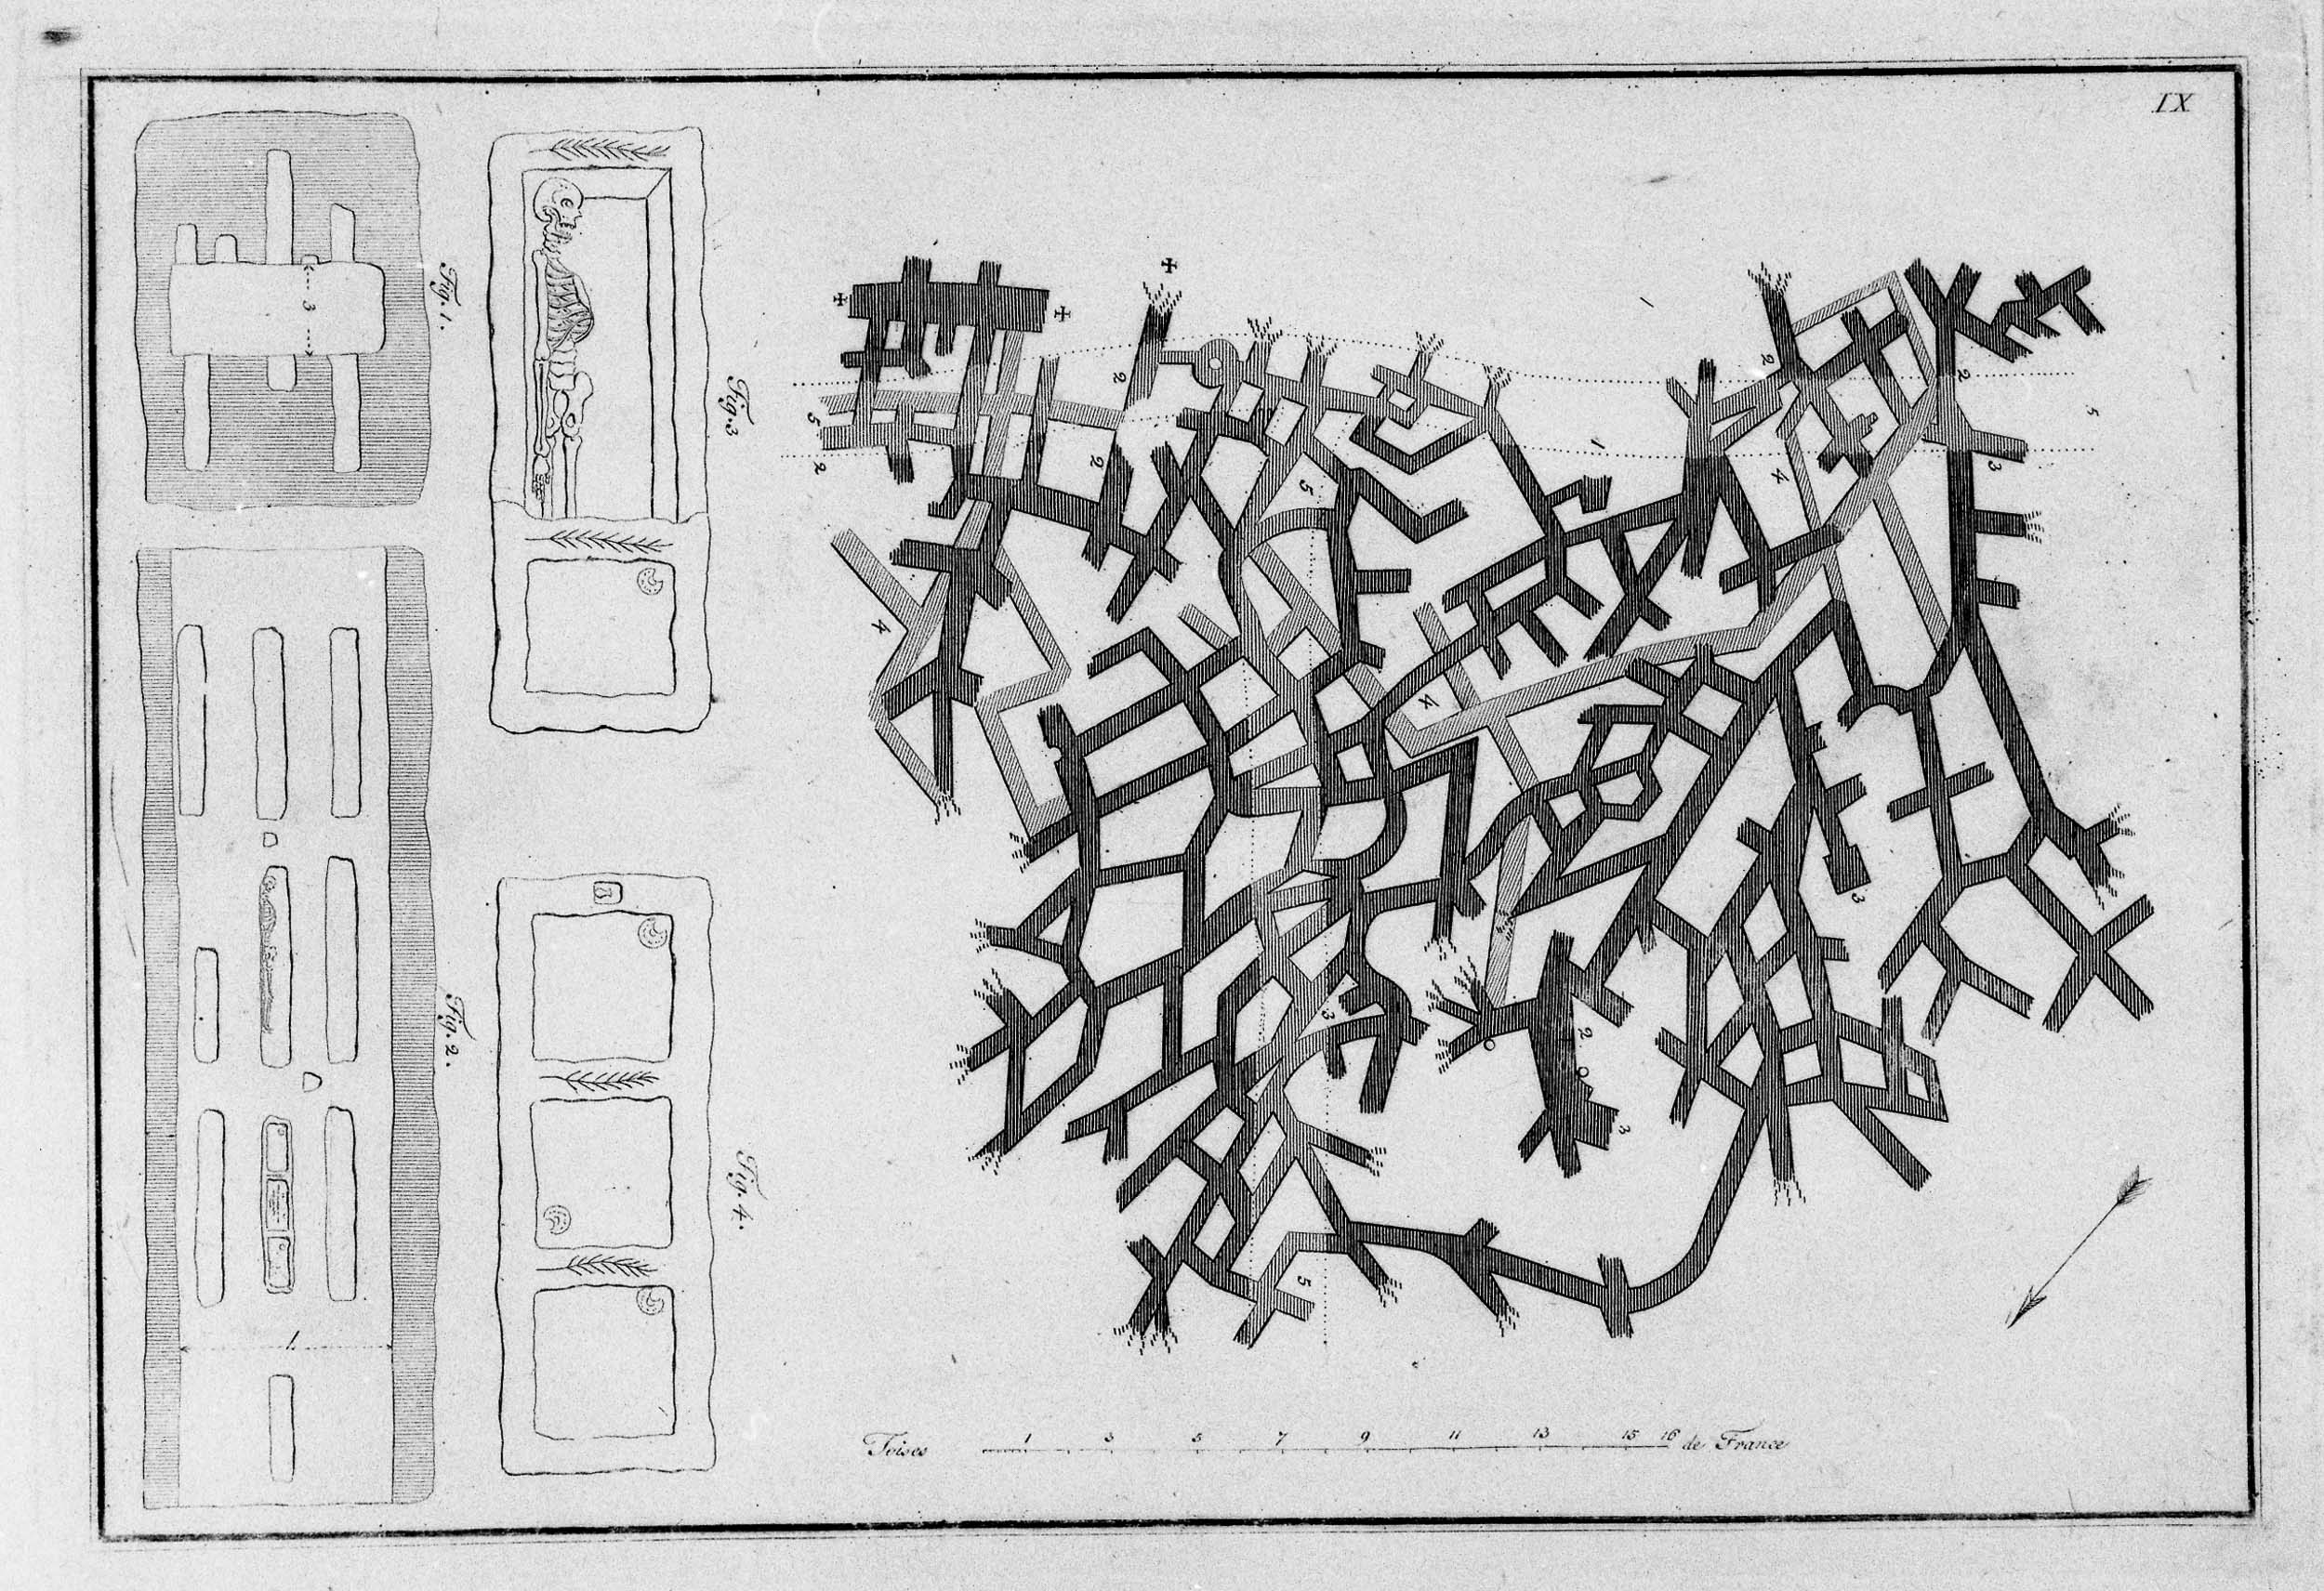 IX
Fig. 1.
3
Fig. 3
Fig. 2.
1
Fig. 4.
2
2
2
5
2
2
5
1
5
4
3
4
4
3
3
2
3
5
Toises 1 3 5 7 9 11 13 15 16 de France